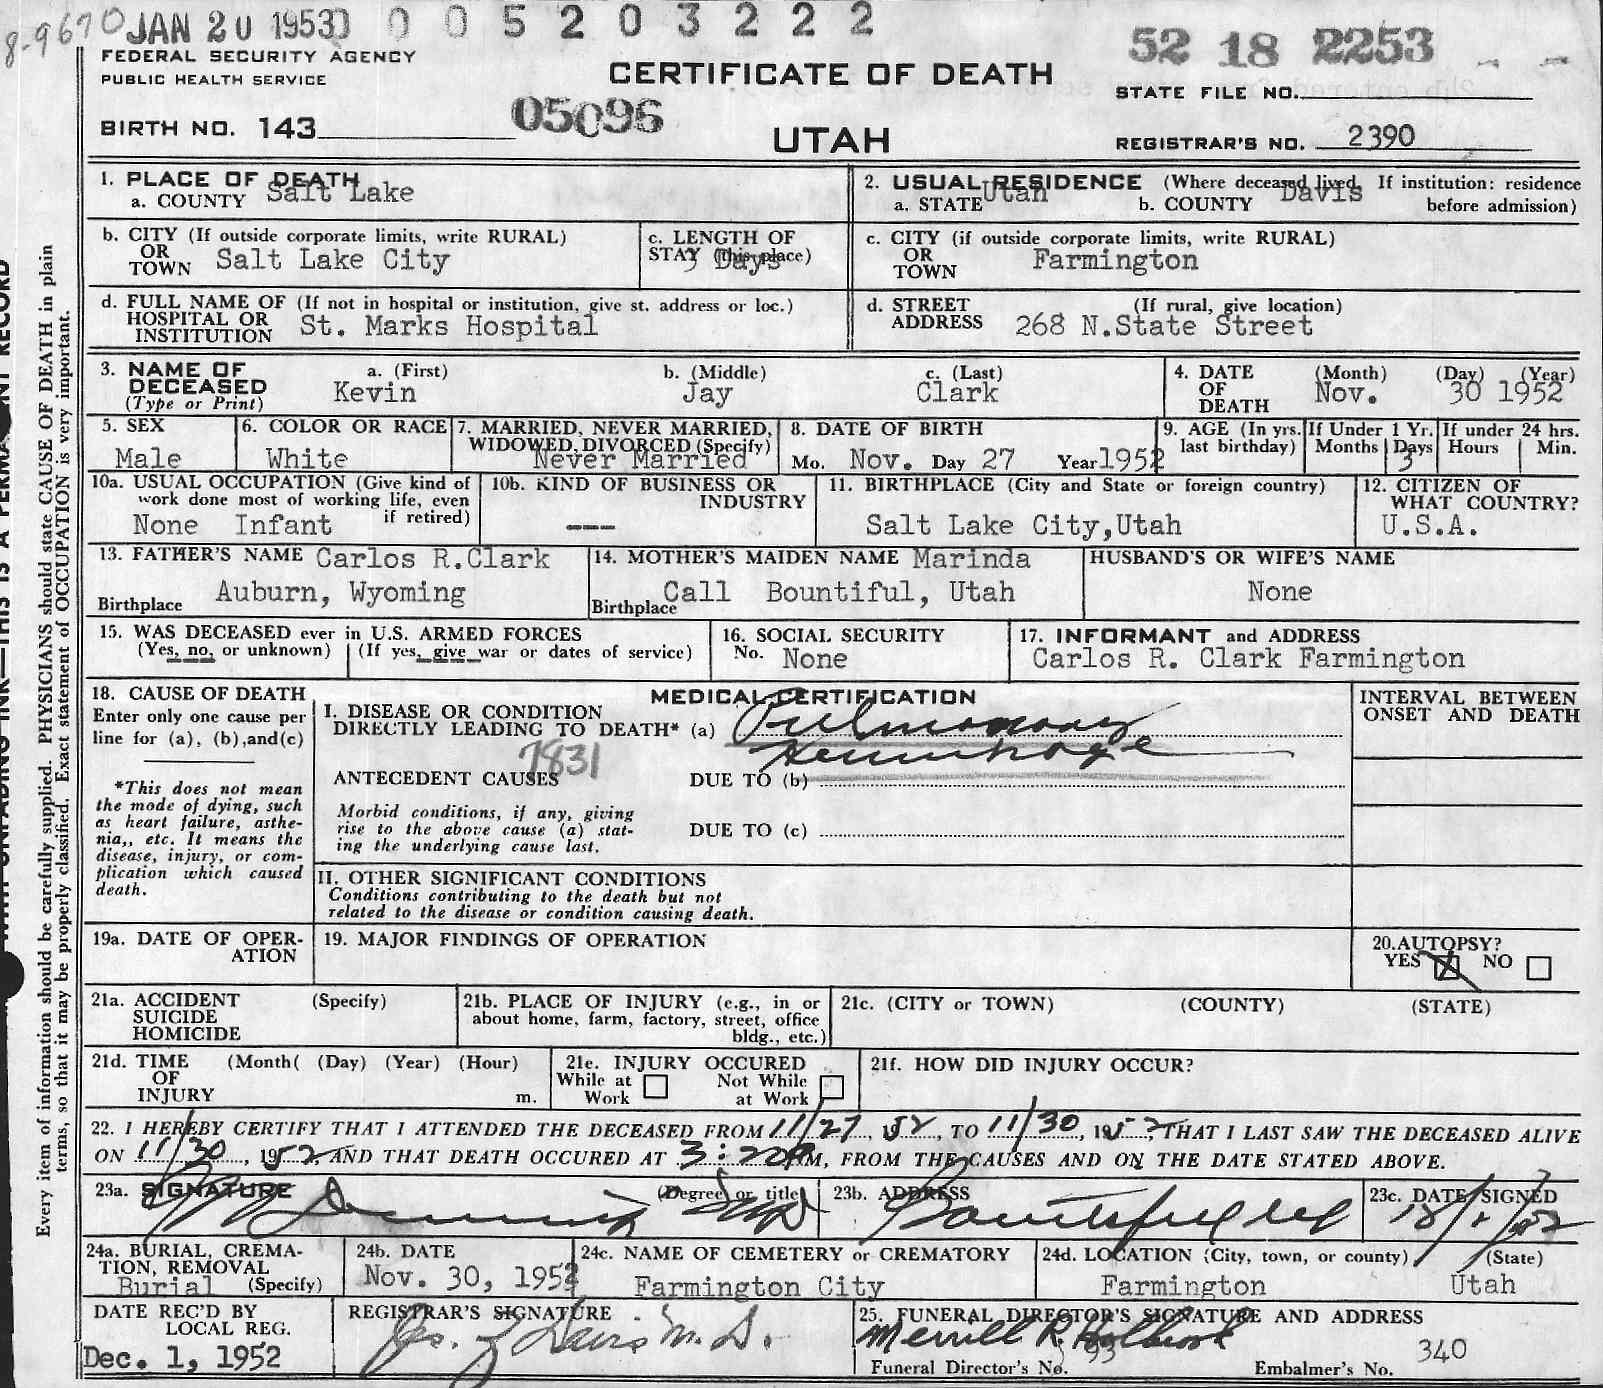 8-9670 JAN 20 1953 0 0 0 5 2 0 3 2 2 2
52 18 2253
FEDERAL SECURITY AGENCY
PUBLIC HEALTH SERVICE
CERTIFICATE OF DEATH
STATE FILE NO.
BIRTH NO. 143 05096
UTAH
REGISTRAR'S NO. 2390
1. PLACE OF DEATH
a. COUNTY Salt Lake
2. USUAL RESIDENCE (Where deceased lived. If institution: residence before admission)
a. STATE Utah b. COUNTY Davis
b. CITY (If outside corporate limits, write RURAL)
OR
TOWN Salt Lake City
c. LENGTH OF
STAY (this place) 3 Days
c. CITY (if outside corporate limits, write RURAL)
OR
TOWN Farmington
d. FULL NAME OF (If not in hospital or institution, give st. address or loc.)
HOSPITAL OR
INSTITUTION St. Marks Hospital
d. STREET (If rural, give location)
ADDRESS 268 N.State Street
3. NAME OF a. (First) b. (Middle) c. (Last)
DECEASED Kevin Jay Clark
(Type or Print)
4. DATE (Month) (Day) (Year)
OF Nov. 30 1952
DEATH
5. SEX
Male
6. COLOR OR RACE
White
7. MARRIED, NEVER MARRIED,
WIDOWED, DIVORCED (Specify)
Never Married
8. DATE OF BIRTH
Mo. Nov. Day 27 Year 1952
9. AGE (In yrs. last birthday)
If Under 1 Yr.
Months Days 3
If under 24 hrs.
Hours Min.
10a. USUAL OCCUPATION (Give kind of
work done most of working life, even
if retired)
None Infant
10b. KIND OF BUSINESS OR
INDUSTRY
---
11. BIRTHPLACE (City and State or foreign country)
Salt Lake City,Utah
12. CITIZEN OF
WHAT COUNTRY?
U.S.A.
13. FATHER'S NAME Carlos R.Clark
Birthplace Auburn, Wyoming
14. MOTHER'S MAIDEN NAME Marinda
Birthplace Call Bountiful, Utah
HUSBAND'S OR WIFE'S NAME
None
15. WAS DECEASED ever in U.S. ARMED FORCES
(Yes, no, or unknown) (If yes, give war or dates of service)
16. SOCIAL SECURITY
No. None
17. INFORMANT and ADDRESS
Carlos R. Clark Farmington
18. CAUSE OF DEATH
Enter only one cause per
line for (a), (b),and(c)
*This does not mean
the mode of dying, such
as heart failure, asthe-
nia,, etc. It means the
disease, injury, or com-
plication which caused
death.
MEDICAL CERTIFICATION
I. DISEASE OR CONDITION
DIRECTLY LEADING TO DEATH* (a) Pulmonary
Hemorrhage
7831
ANTECEDENT CAUSES DUE TO (b)
Morbid conditions, if any, giving
rise to the above cause (a) stat-
ing the underlying cause last.
DUE TO (c)
II. OTHER SIGNIFICANT CONDITIONS
Conditions contributing to the death but not
related to the disease or condition causing death.
INTERVAL BETWEEN
ONSET AND DEATH
19a. DATE OF OPER-
ATION
19. MAJOR FINDINGS OF OPERATION
20.AUTOPSY?
YES NO
21a. ACCIDENT (Specify)
SUICIDE
HOMICIDE
21b. PLACE OF INJURY (e.g., in or
about home, farm, factory, street, office
bldg., etc.)
21c. (CITY or TOWN) (COUNTY) (STATE)
21d. TIME (Month( (Day) (Year) (Hour)
OF
INJURY m.
21e. INJURY OCCURED
While at Work Not While at Work
21f. HOW DID INJURY OCCUR?
22. I HEREBY CERTIFY THAT I ATTENDED THE DECEASED FROM 11/27, 1952, TO 11/30, 1952, THAT I LAST SAW THE DECEASED ALIVE
ON 11/30, 1952, AND THAT DEATH OCCURED AT 3:20 PM, FROM THE CAUSES AND ON THE DATE STATED ABOVE.
23a. SIGNATURE (Degree or title)
23b. ADDRESS
Bountiful
23c. DATE SIGNED
24a. BURIAL, CREMA-
TION, REMOVAL
Burial (Specify)
24b. DATE
Nov. 30, 1952
24c. NAME OF CEMETERY or CREMATORY
Farmington City
24d. LOCATION (City, town, or county) (State)
Farmington Utah
DATE REC'D BY
LOCAL REG.
Dec. 1, 1952
REGISTRAR'S SIGNATURE
25. FUNERAL DIRECTOR'S SIGNATURE AND ADDRESS
Merrill R. Holbrook
Funeral Director's No. 93 Embalmer's No. 340
Every item of information should be carefully supplied. PHYSICIANS should state CAUSE OF DEATH in plain
terms, so that it may be properly classified. Exact statement of OCCUPATION is very important.